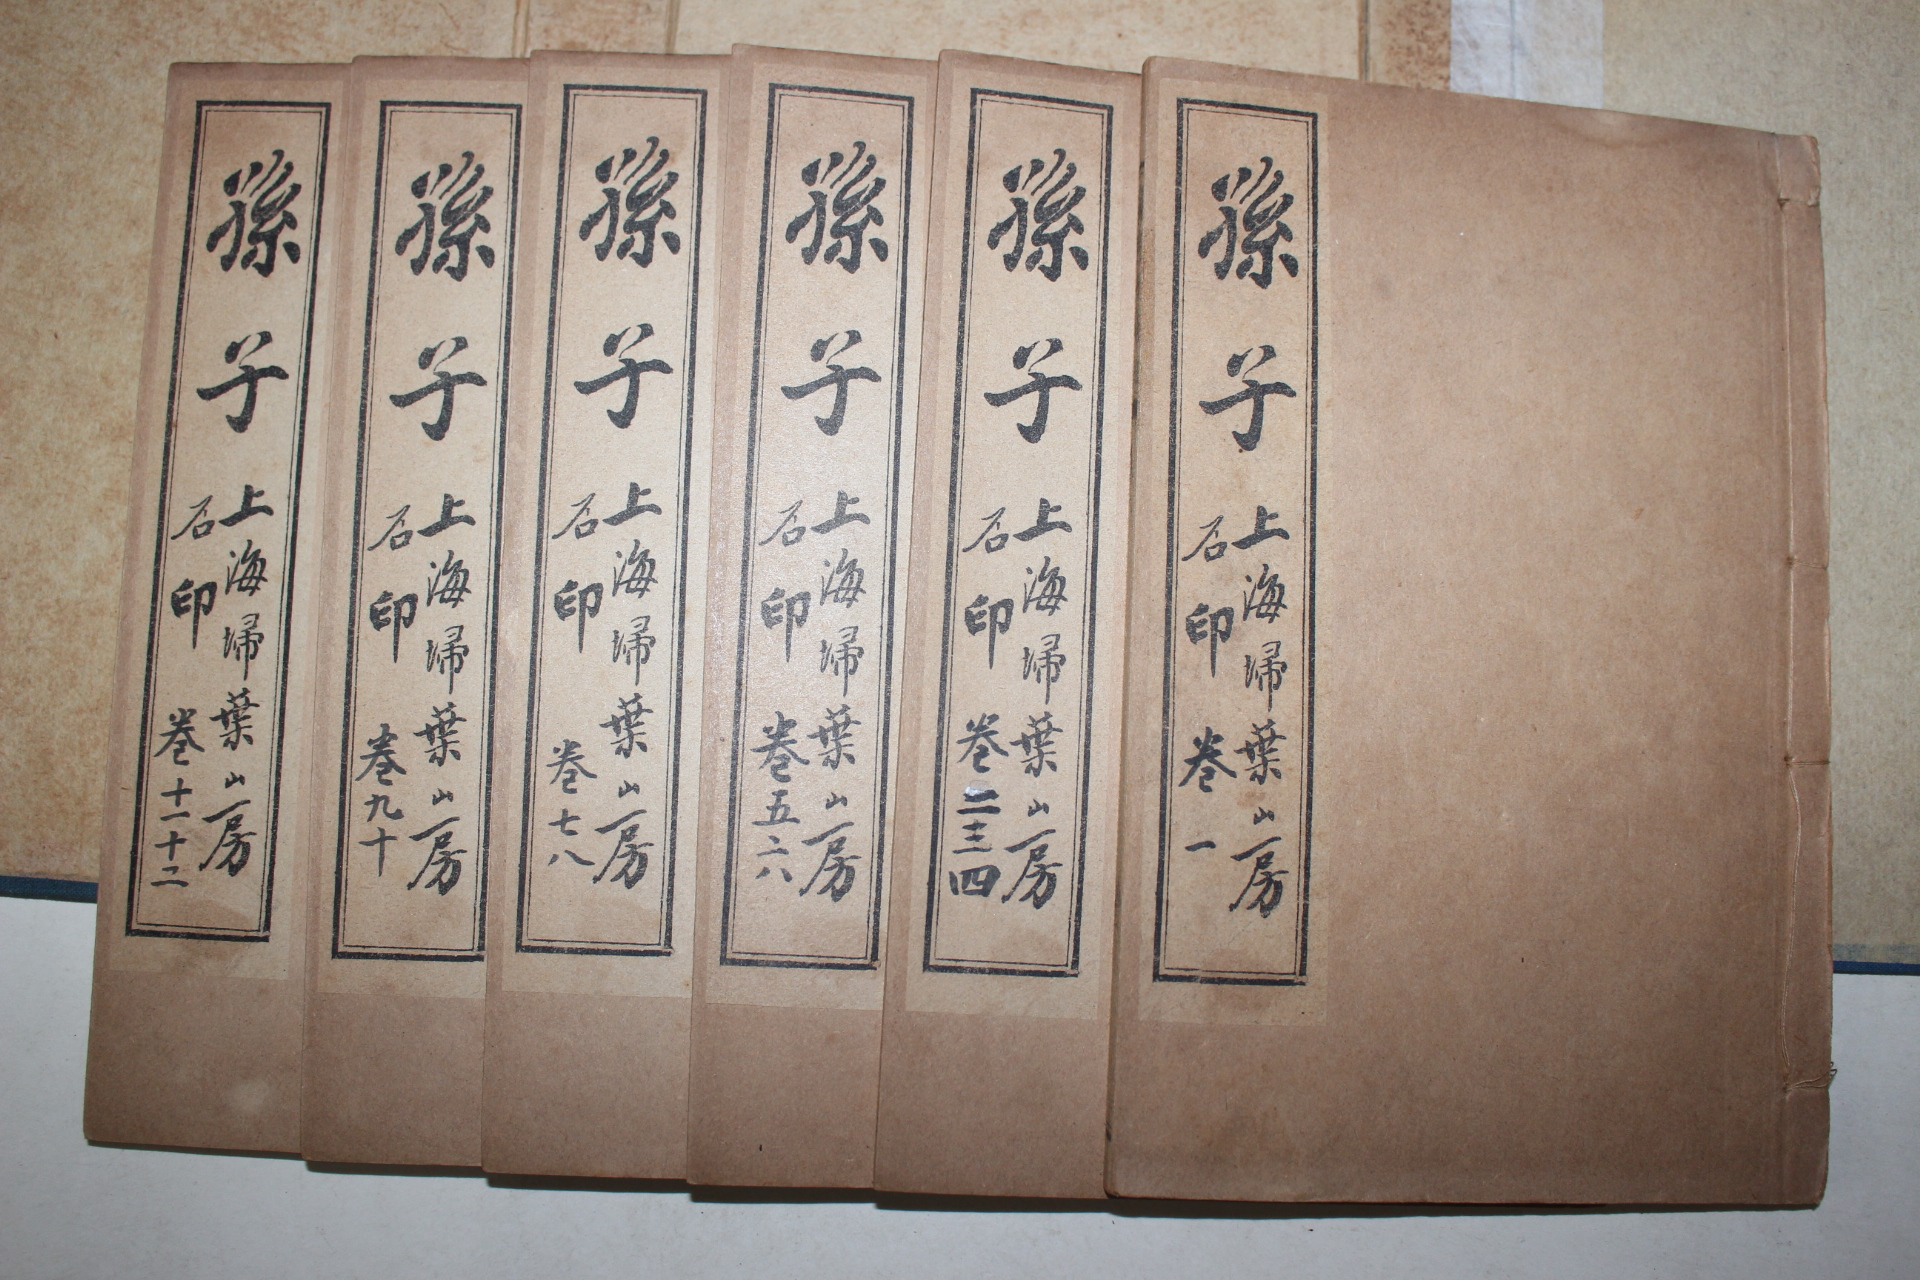 孫子
上海掃葉山房
石印
卷一
孫子
上海掃葉山房
石印
卷二三四
孫子
上海掃葉山房
石印
卷五六
孫子
上海掃葉山房
石印
卷七八
孫子
上海掃葉山房
石印
卷九十
孫子
上海掃葉山房
石印
卷十一十二